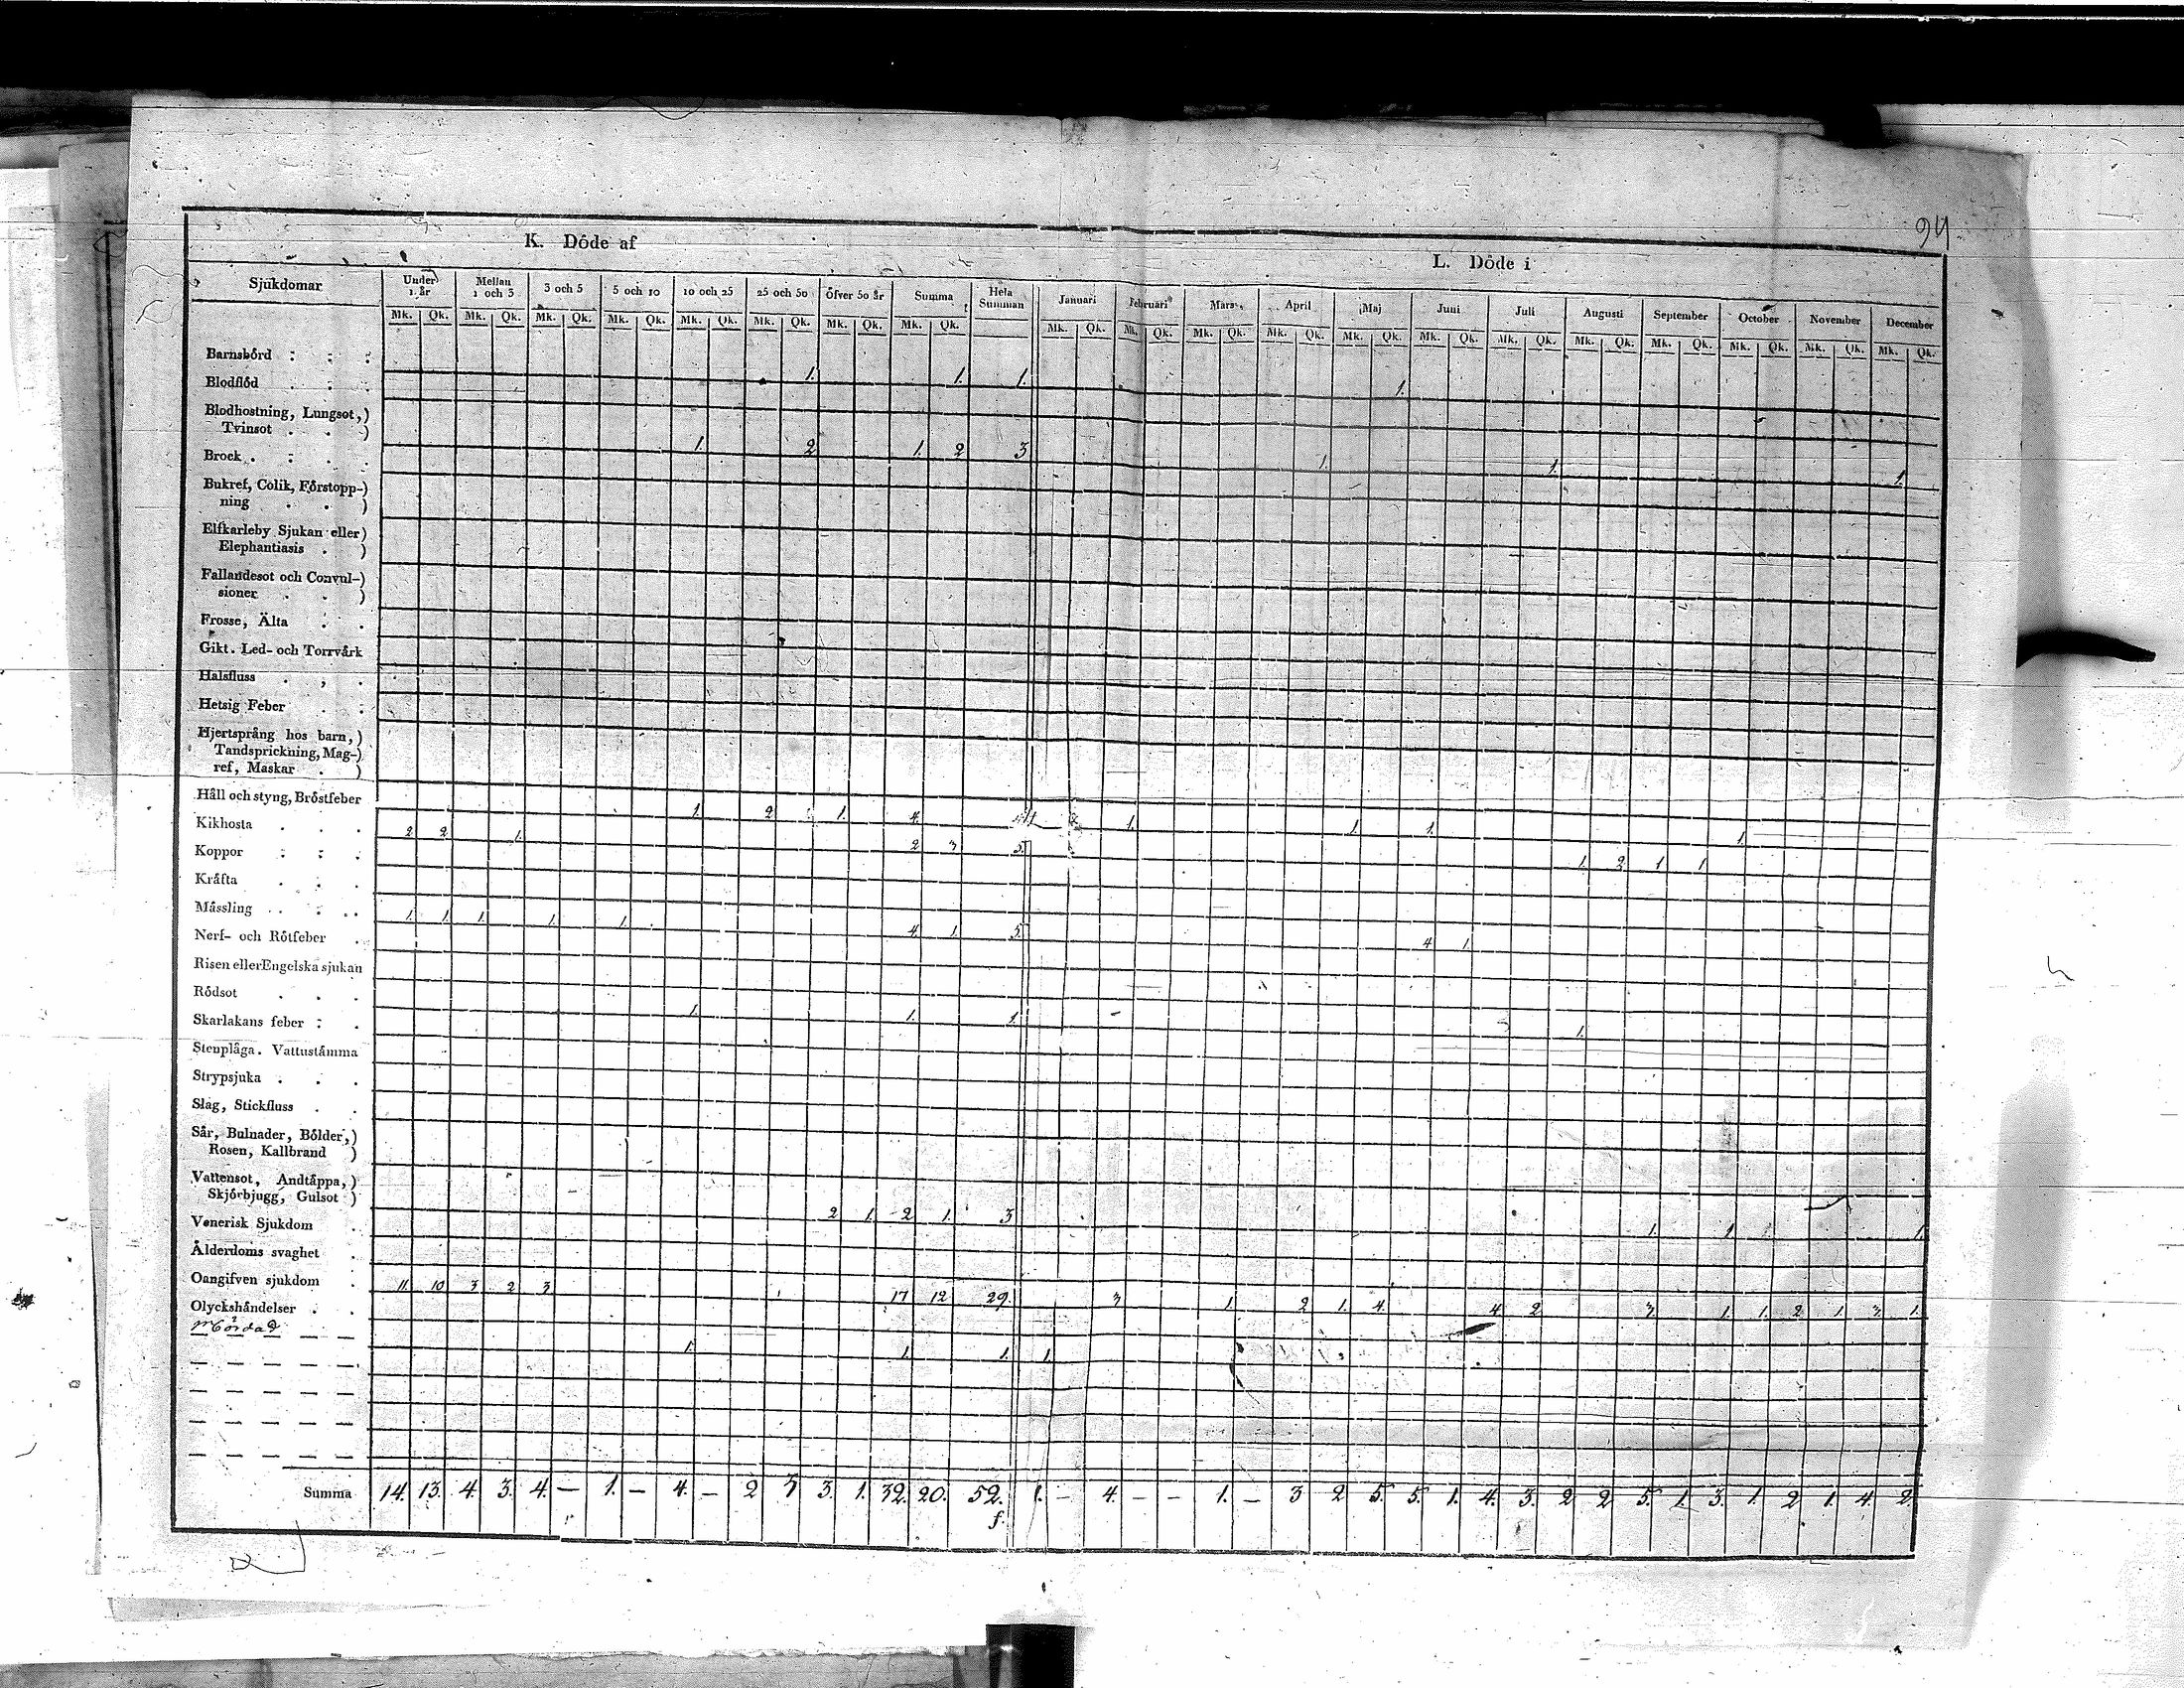 94
K. Döde af
L. Döde i
Sjukdomar Under 1. år Mellan 1 och 3 3 och 5 5 och 10 10 och 25 25 och 50 Öfver 50 år Summa Hela Summan Januari Februari Mars April Maj Juni Juli Augusti September October November December
Mk. Qk. Mk. Qk. Mk. Qk. Mk. Qk. Mk. Qk. Mk. Qk. Mk. Qk. Mk. Qk. Mk. Qk. Mk. Qk. Mk. Qk. Mk. Qk. Mk. Qk. Mk. Qk. Mk. Qk. Mk. Qk. Mk. Qk. Mk. Qk. Mk. Qk. Mk. Qk.
Barnsbörd 1. 1. 1. 1.
Blodflöd
Blodhostning, Lungsot,)
Tvinsot . . ) 1. 2 1. 2 3 1. 1. 1.
Brock .
Bukref, Colik, Förstopp-)
ning . . )
Elfkarleby Sjukan eller)
Elephantiasis . )
Fallandesot och Convul-)
sioner . . )
Frosse, Älta
Gikt. Led- och Torrvärk
Halsfluss
Hetsig Feber
Hjertsprång hos barn,)
Tandsprickning, Mag-)
ref, Maskar . )
Håll och styng, Bröstfeber 1. 2 1. 4. 4 1. 1. 1. 1.
Kikhosta 2 2 1. 2 3 5. 1. 2 1 1
Koppor
Kräfta
Mässling 1. 1. 1. 1. 1. 4 1. 5. 4 1.
Nerf- och Rötfeber
Risen eller Engelska sjukan
Rödsot 1. 1. 1. 1.
Skarlakans feber
Stenplåga. Vattustämma
Strypsjuka
Slag, Stickfluss
Sår, Bulnader, Bölder,)
Rosen, Kallbrand )
Vattensot, Andtäppa,)
Skjörbjugg, Gulsot ) 2 1. 2 1. 3 1. 1. 1.
Venerisk Sjukdom
Ålderdoms svaghet
Oangifven sjukdom 11. 10 3 2 3 17 12 29. 3 1. 2 1. 4. 4 2 3 1. 1. 2 1. 3 1.
Olyckshändelser
mördad 1. 1. 1. 1.
Summa 14. 13. 4. 3. 4. — 1. — 4. — 2 3 3. 1. 32. 20. 52. 1. — 4. — — 1. — 3 2 5. 5. 1. 4. 3. 2 2 5. 1. 3. 1. 2 1. 4. 2.
f.